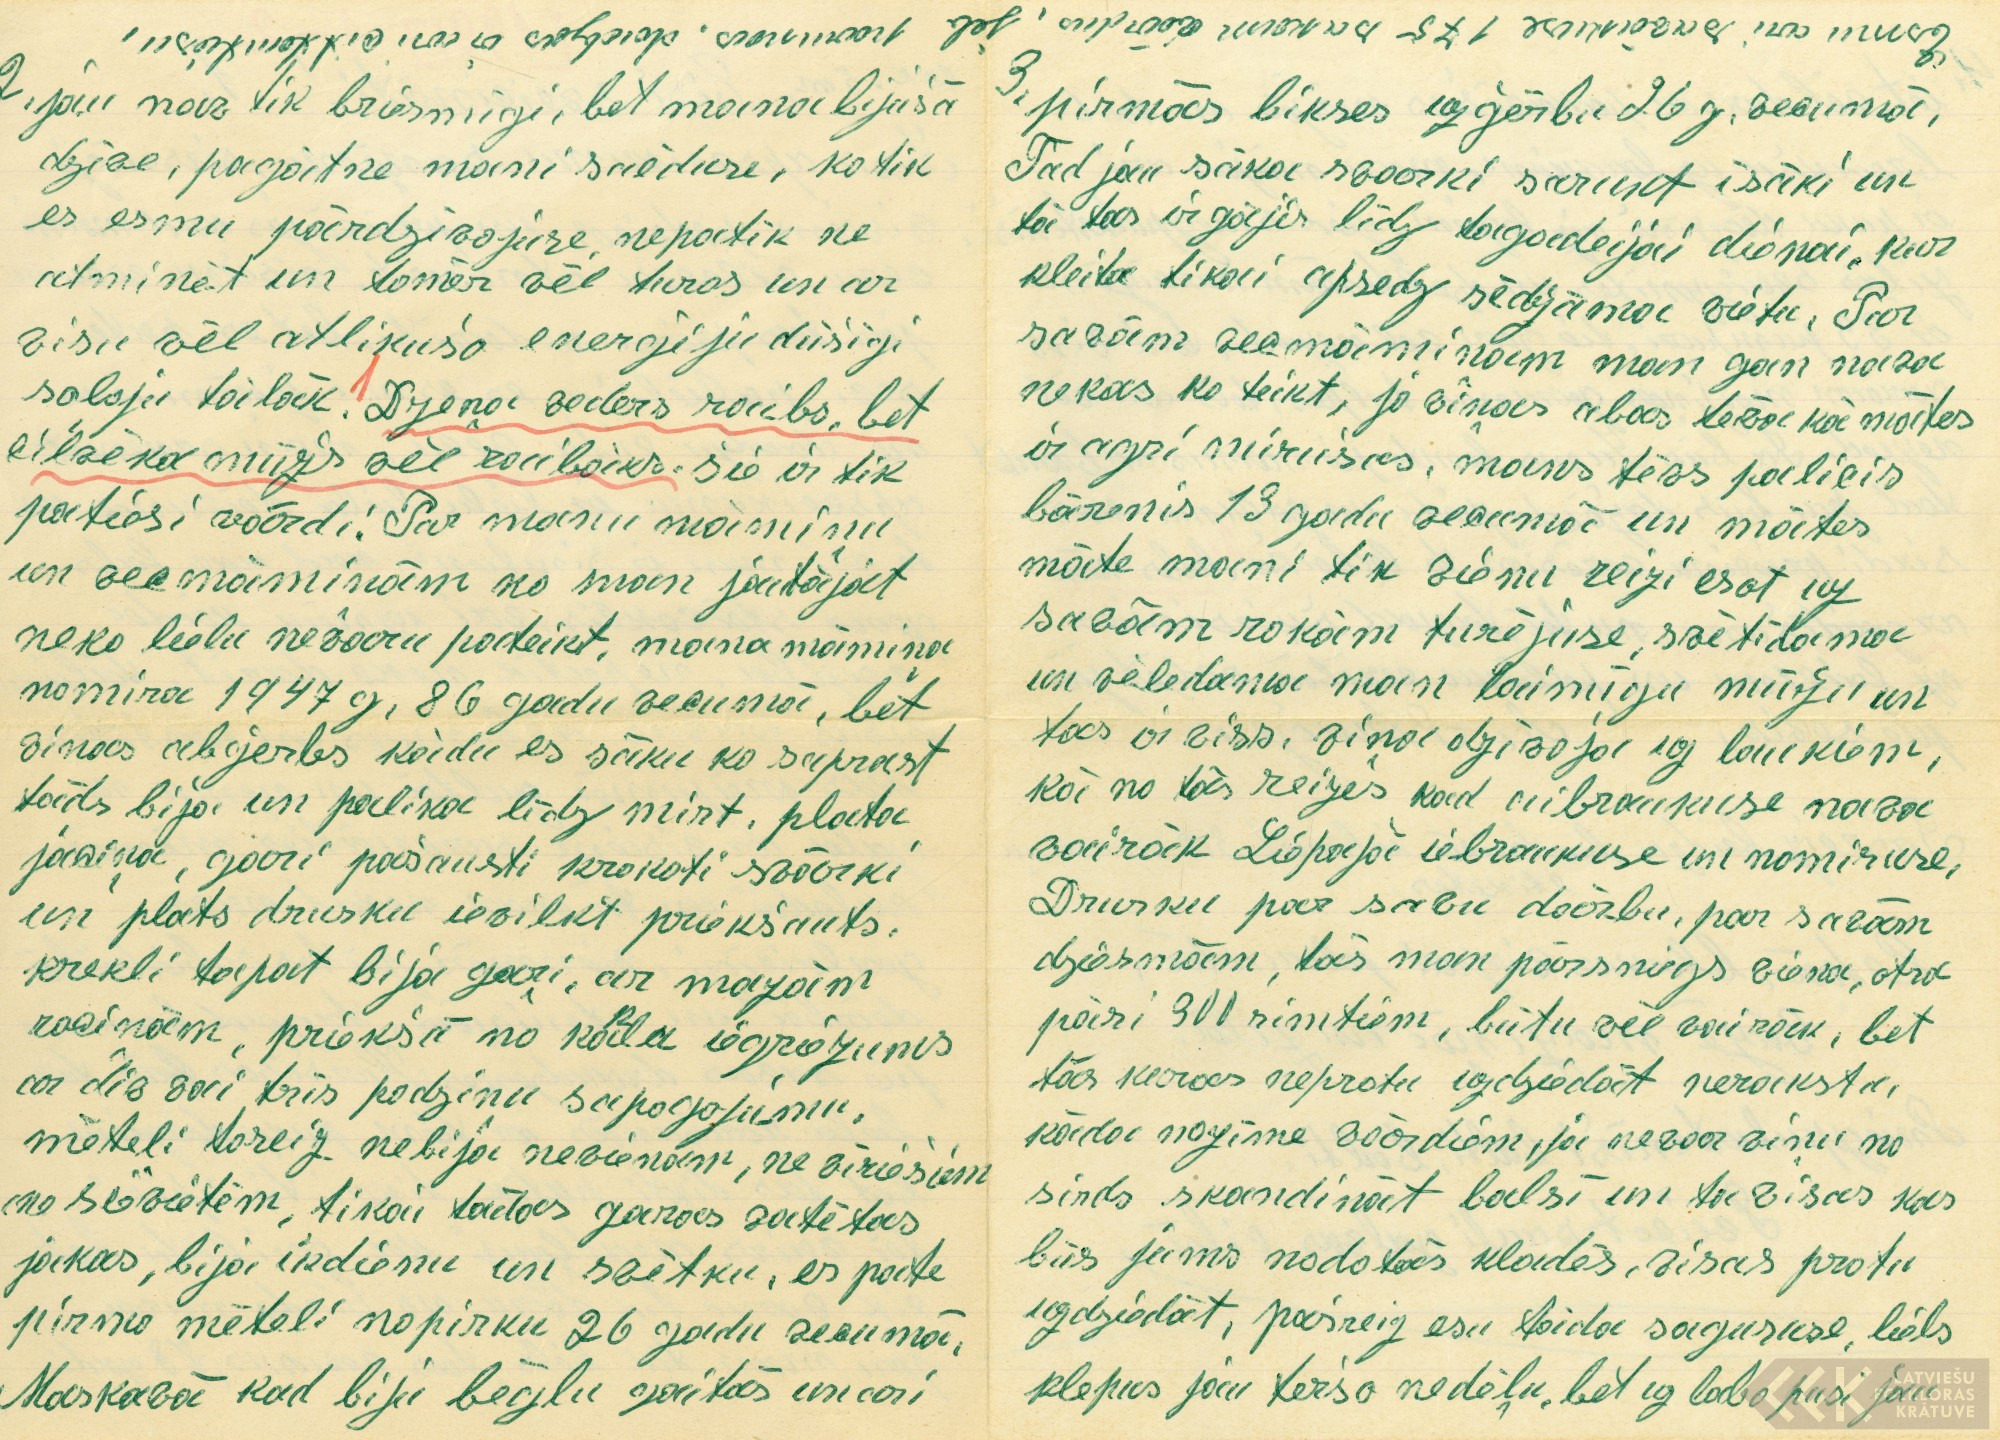 2. jau nav tik briesmīgi, bet mana bijušā
dzīve, pagātne mani saēduse, ko tik
es esmu pārdzīvojuse, nepatīk ne
atminēt un tomēr vēl turos un ar
visu vēl atlikušo enerģiju dūšīgi
soļoju tālāk. Dzeņa vēders raibs, bet
cilvēka mūžs vēl raibāks. šie ir tik
patiesi vārdi! Par manu māmiņu
un vecmāmiņām ko man jautājat
neko lielu nevaru pateikt, mana māmiņa
nomira 1947 g, 86 gadu vecumā, bet
viņas abģerbs kādu es sāku ko saprast
tāds bija un palika līdz mirt, plata
jaciņa, gari pašausti krokoti svārki
un plats drusku ievilkt priekšauts.
krekli tapat bija gari, ar mazām
rociņām, priekšā no kakla iegriezums
ar div vai trīs podziņu sapogājumu.
mēteli toreiz nebija nevienam, ne vīriešiem
no sievietēm, tikai tādas garas vatētas
jakas, bija ikdienu un svētku, es pate
pirmo mēteli nopirku 26 gadu vecumā.
Maskavā kad biju bēgļu gaitās un ari
3. pirmās bikses uzģērbu 26 g, vecumā,
Tad jau sāka svarki sarukt īsāki un
tā tas ir gājis līdz tagadeijai dienai, kur
kleita tikai apsedz sēdžama vietu. Par
savām vecmāmiņam man gan nava
nekas ko teikt, jo viņas abas tēva kā mātes
ir agri mirušas, mans tēvs palicis
bārenis 13 gadu vecumā un mātes
māte mani tik vienu reizi esot uz
savām rokām turējuse, svētīdama
un vēledama man laimīgu mūžu un
tas ir viss. viņa dzīvoja uz laukiem,
kā no tās reizes kad aibraukuse nava
vairāk Liepajā iebraukuse un nomiruse.
Drusku par savu darbu, par savām
dziesmām, tās man pārsniegs viena, otra
pāri 300 simtiem, būtu vēl vairāk, bet
tās kuras neprotu uzdziedāt nerakstu,
kāda nozīme vārdiem, ja nevar viņu no
sirds skandināt balsī un ta visas kas
būs jums nodotās kladēs, visas protu
uzdziedāt, pašreiz esu tāida saguruse, liels
klepus jau terso nedēļu, bet uz labo pusi jau
LATVIEŠU
FOLKLORAS
KRĀTUVE